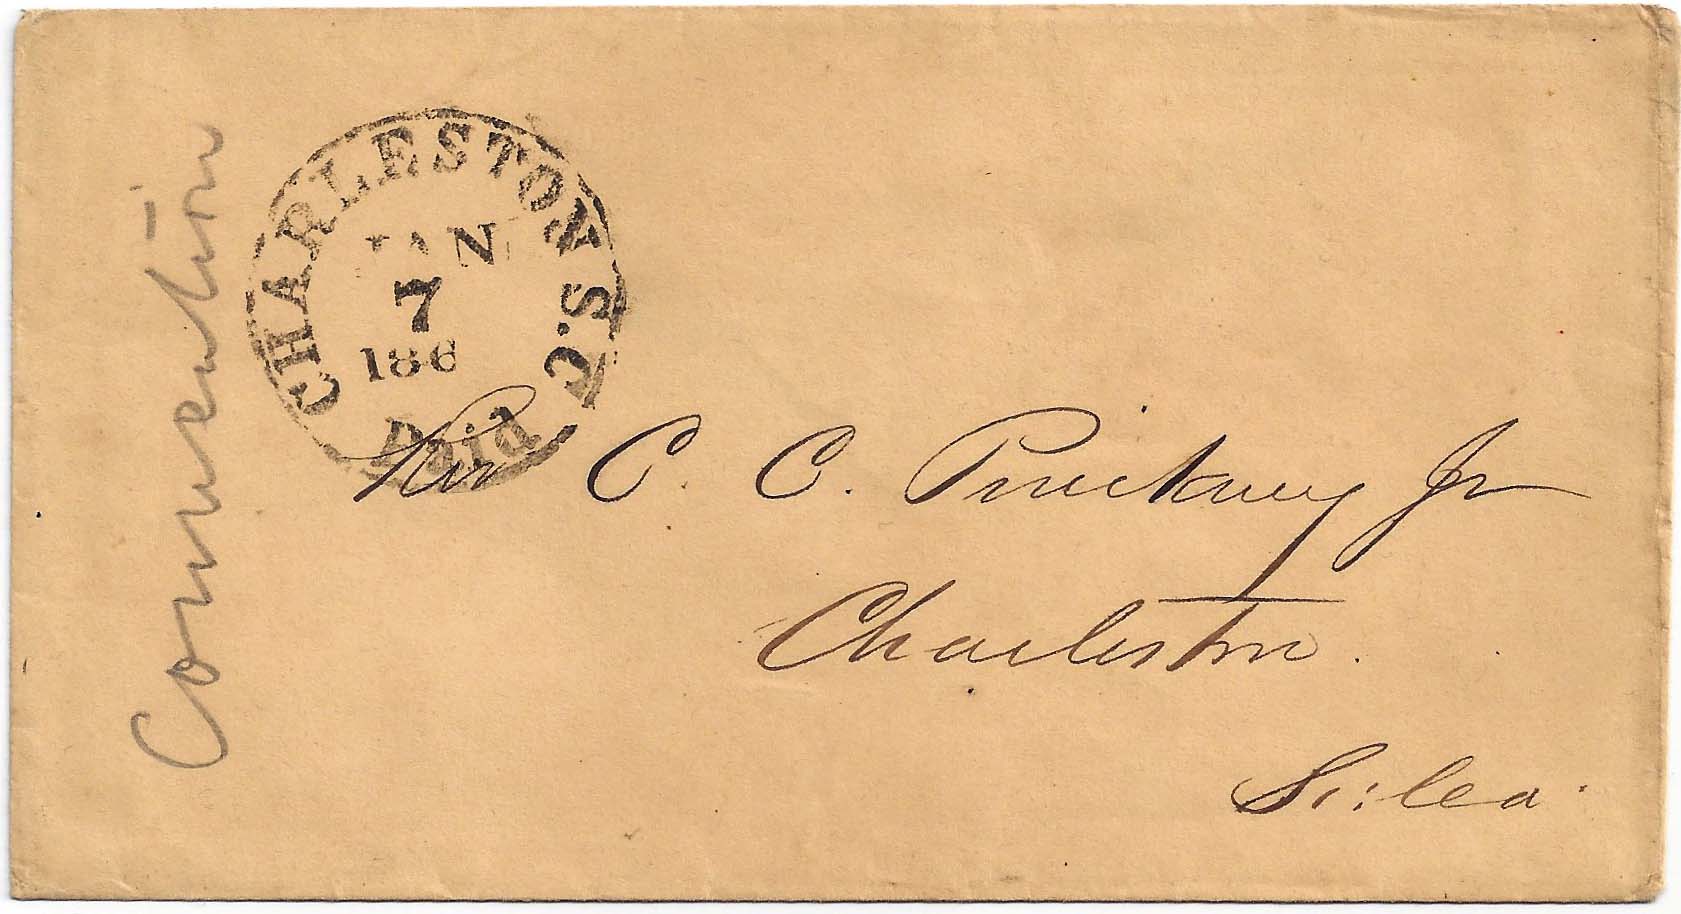 CHARLESTON S.C.
JAN
7
186
Paid
Rev C. C. Pinckney Jr
Charleston.
So: Ca.
Convention